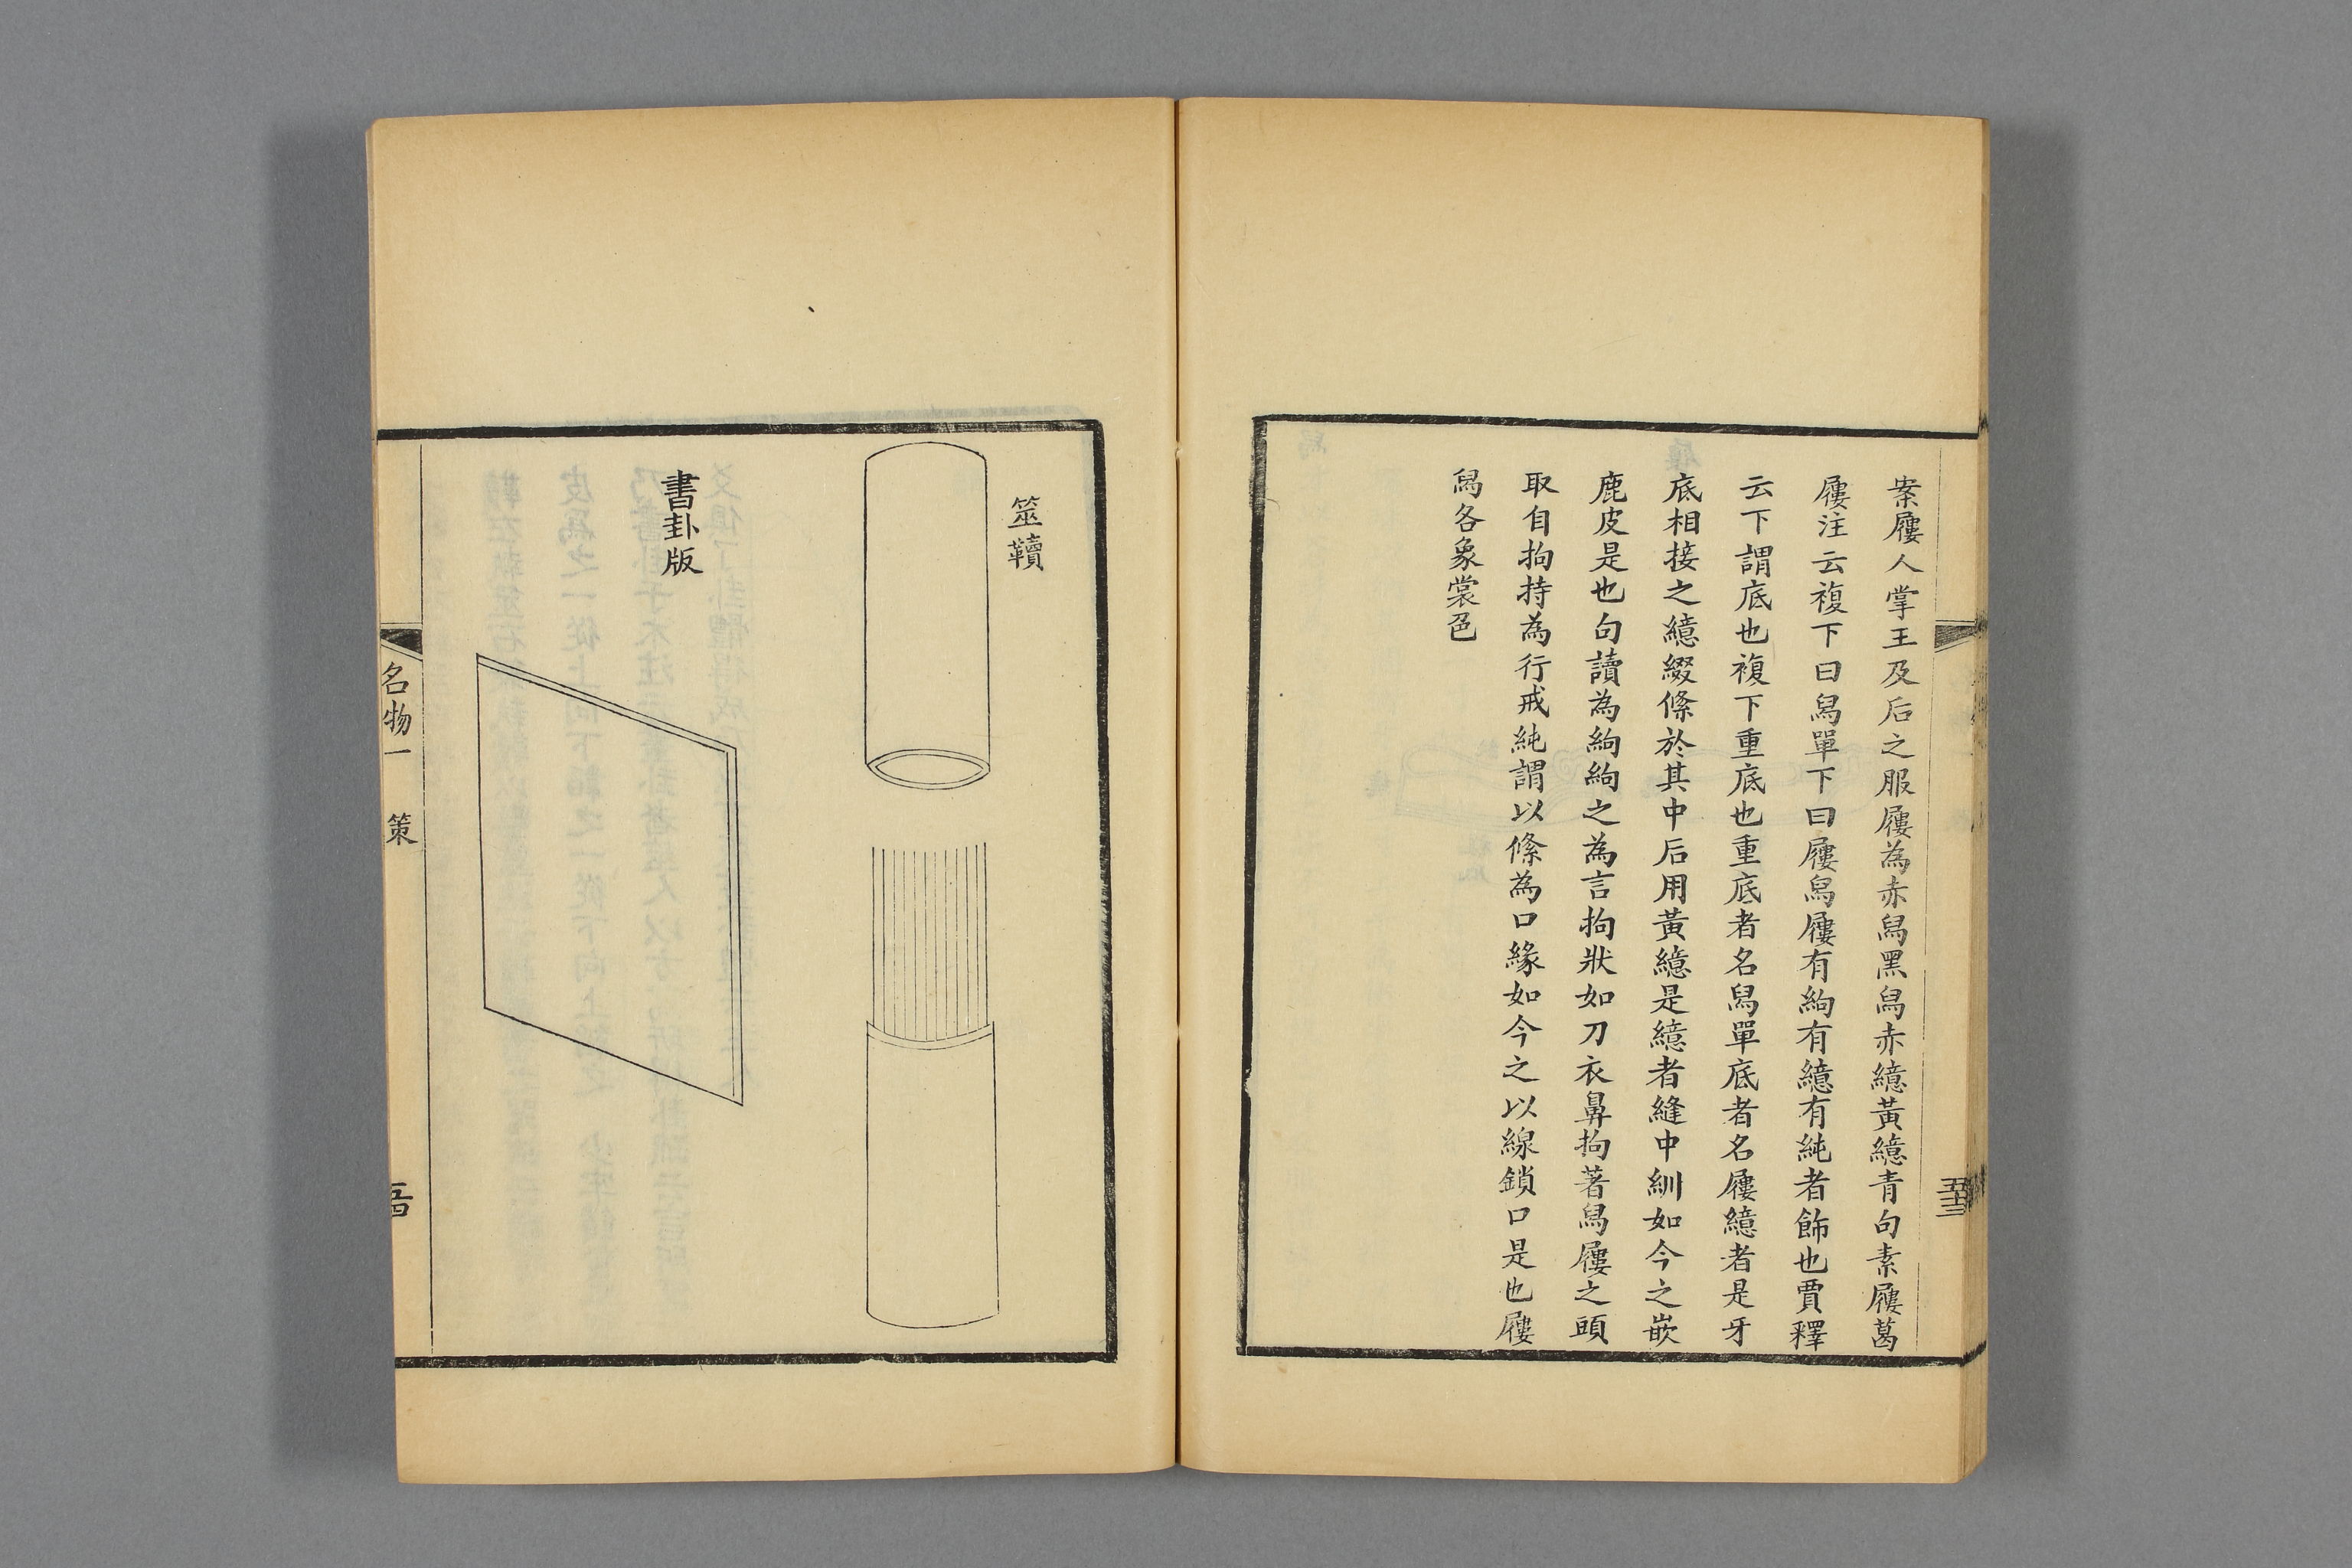 案屨人掌王及后之服屨為赤舄黑舄赤繶黃繶青句素屨葛
屨注云複下曰舄單下曰屨舄屨有絇有繶有純者飾也賈釋
云下謂底也複下重底也重底者名舄單底者名屨繶者是牙
底相接之繶綴絛於其中后用黃繶是繶者縫中紃如今之嵌
鹿皮是也句讀為絇絇之為言拘狀如刀衣鼻拘著舄屨之頭
取自拘持為行戒純謂以絛為口緣如今之以線鎖口是也屨
舄各象裳色
五十三
筮韇
書卦版
名物一 策